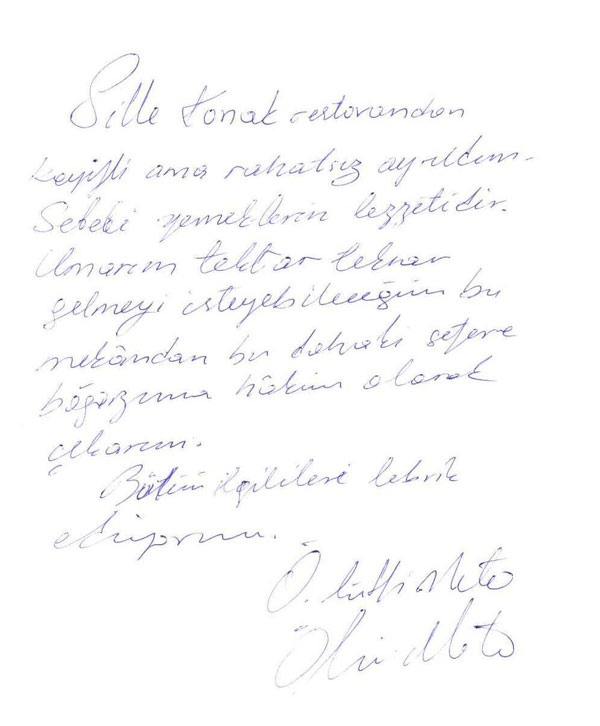 Sille Konak restorandan
keyifli ama rahatsız ayrıldım.
Sebebi yemeklerin lezzetidir.
Umarım tekrar tekrar
gelmeyi isteyebileceğim bu
mekândan bu dahaki sefere
boğazıma hâkim olarak
çıkarım.
Bütün ilgilileri tebrik
ediyorum.
Ö. Lütfi Mete